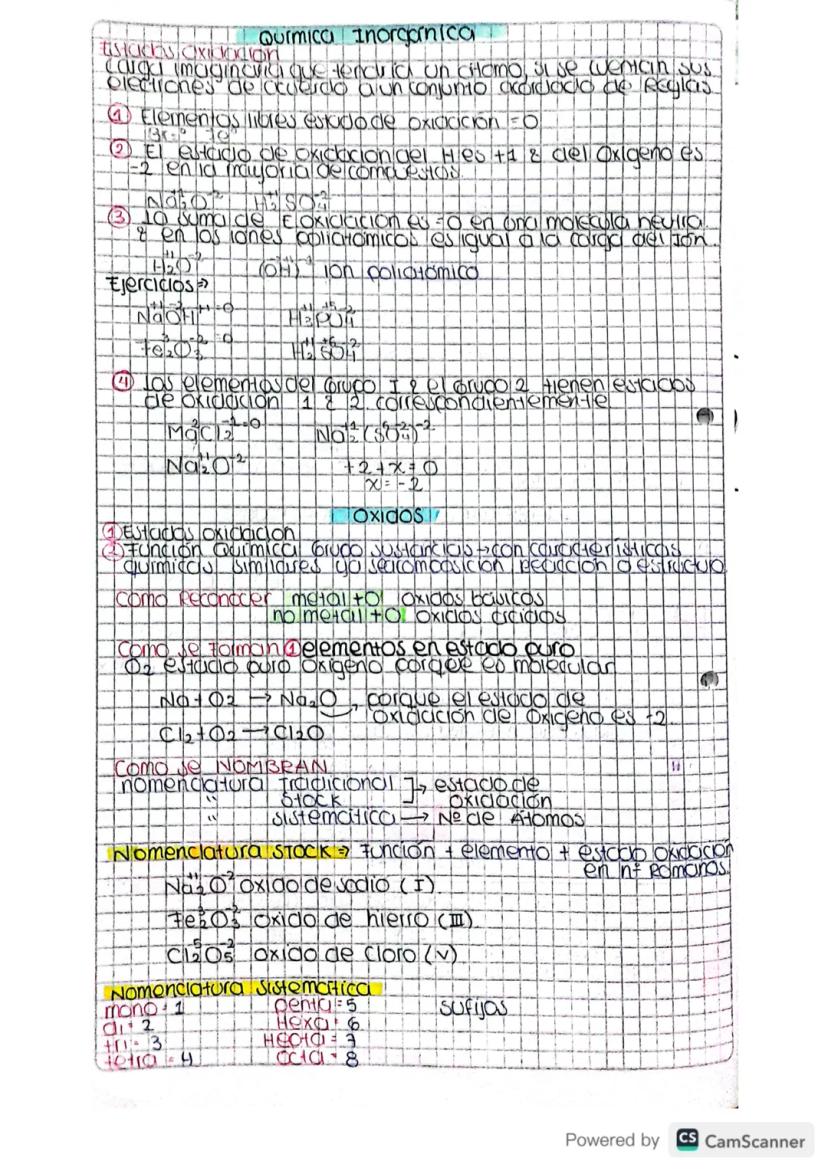 Química Inorgánica
Estados Oxidación
Carga imaginaria que tendría un átomo, si se cuentan sus
electrones de acuerdo a un conjunto acordado de Reglas
① Elementos libres estado de oxidación = 0
② El estado de oxidación del H es +1 & del Oxígeno es
-2 en la mayoria de compuestos.
Na₂⁺¹O⁻² H₂⁺¹SO₄⁻²
③ la suma de E oxidación es = 0 en una molecula neutra
& en los iones poliatómicos es igual a la carga del Ion.
H₂⁺¹O⁻² (OH)⁻¹ ion poliatómico
Ejercicios ⇒
NaOH = 0 H₃⁺¹PO₄⁻²
Fe₂O₃⁻² = 0 H₂⁺¹S⁺⁶O₄⁻²
④ las elementos del Grupo I & el Grupo 2 tienen estados
de oxidación 1 & 2 correspondientemente
Mg²Cl₂⁻¹ = 0 Na₂⁺¹(SO₄)⁻²
Na₂⁺¹O⁻² +2 + x = 0
x = -2
Oxidos
① Estados oxidacion
② Función Química Grupo sustancias → con características
químicas similares ya sea composición reacción o estructu
Como Reconocer metal + O oxidos básicos
no metal + O oxidos ácidos
Como se forman ① elementos en estado puro
O₂ estado puro oxígeno porque es molecular
Na + O₂ → Na₂O, porque el estado de
oxidación de Oxígeno es -2
Cl₂ + O₂ → Cl₂O
Como se NOMBRAN
nomenclatura Tradicional ] → estado de
" Stock ] oxidación
" sistemática → Nº de Átomos
Nomenclatura STOCK ⇒ Función + elemento + estado oxidación
en nº Romanos
Na₂⁺¹O⁻² oxido de sodio (I)
Fe₂³O₃⁻² oxido de hierro (III)
Cl₂⁵O₅⁻² oxido de cloro (V)
Nomenclatura Sistemática
mono = 1 penta = 5 sufijos
di = 2 Hexa = 6
tri = 3 Hepta = 7
tetra = 4 octa = 8
Powered by CS CamScanner